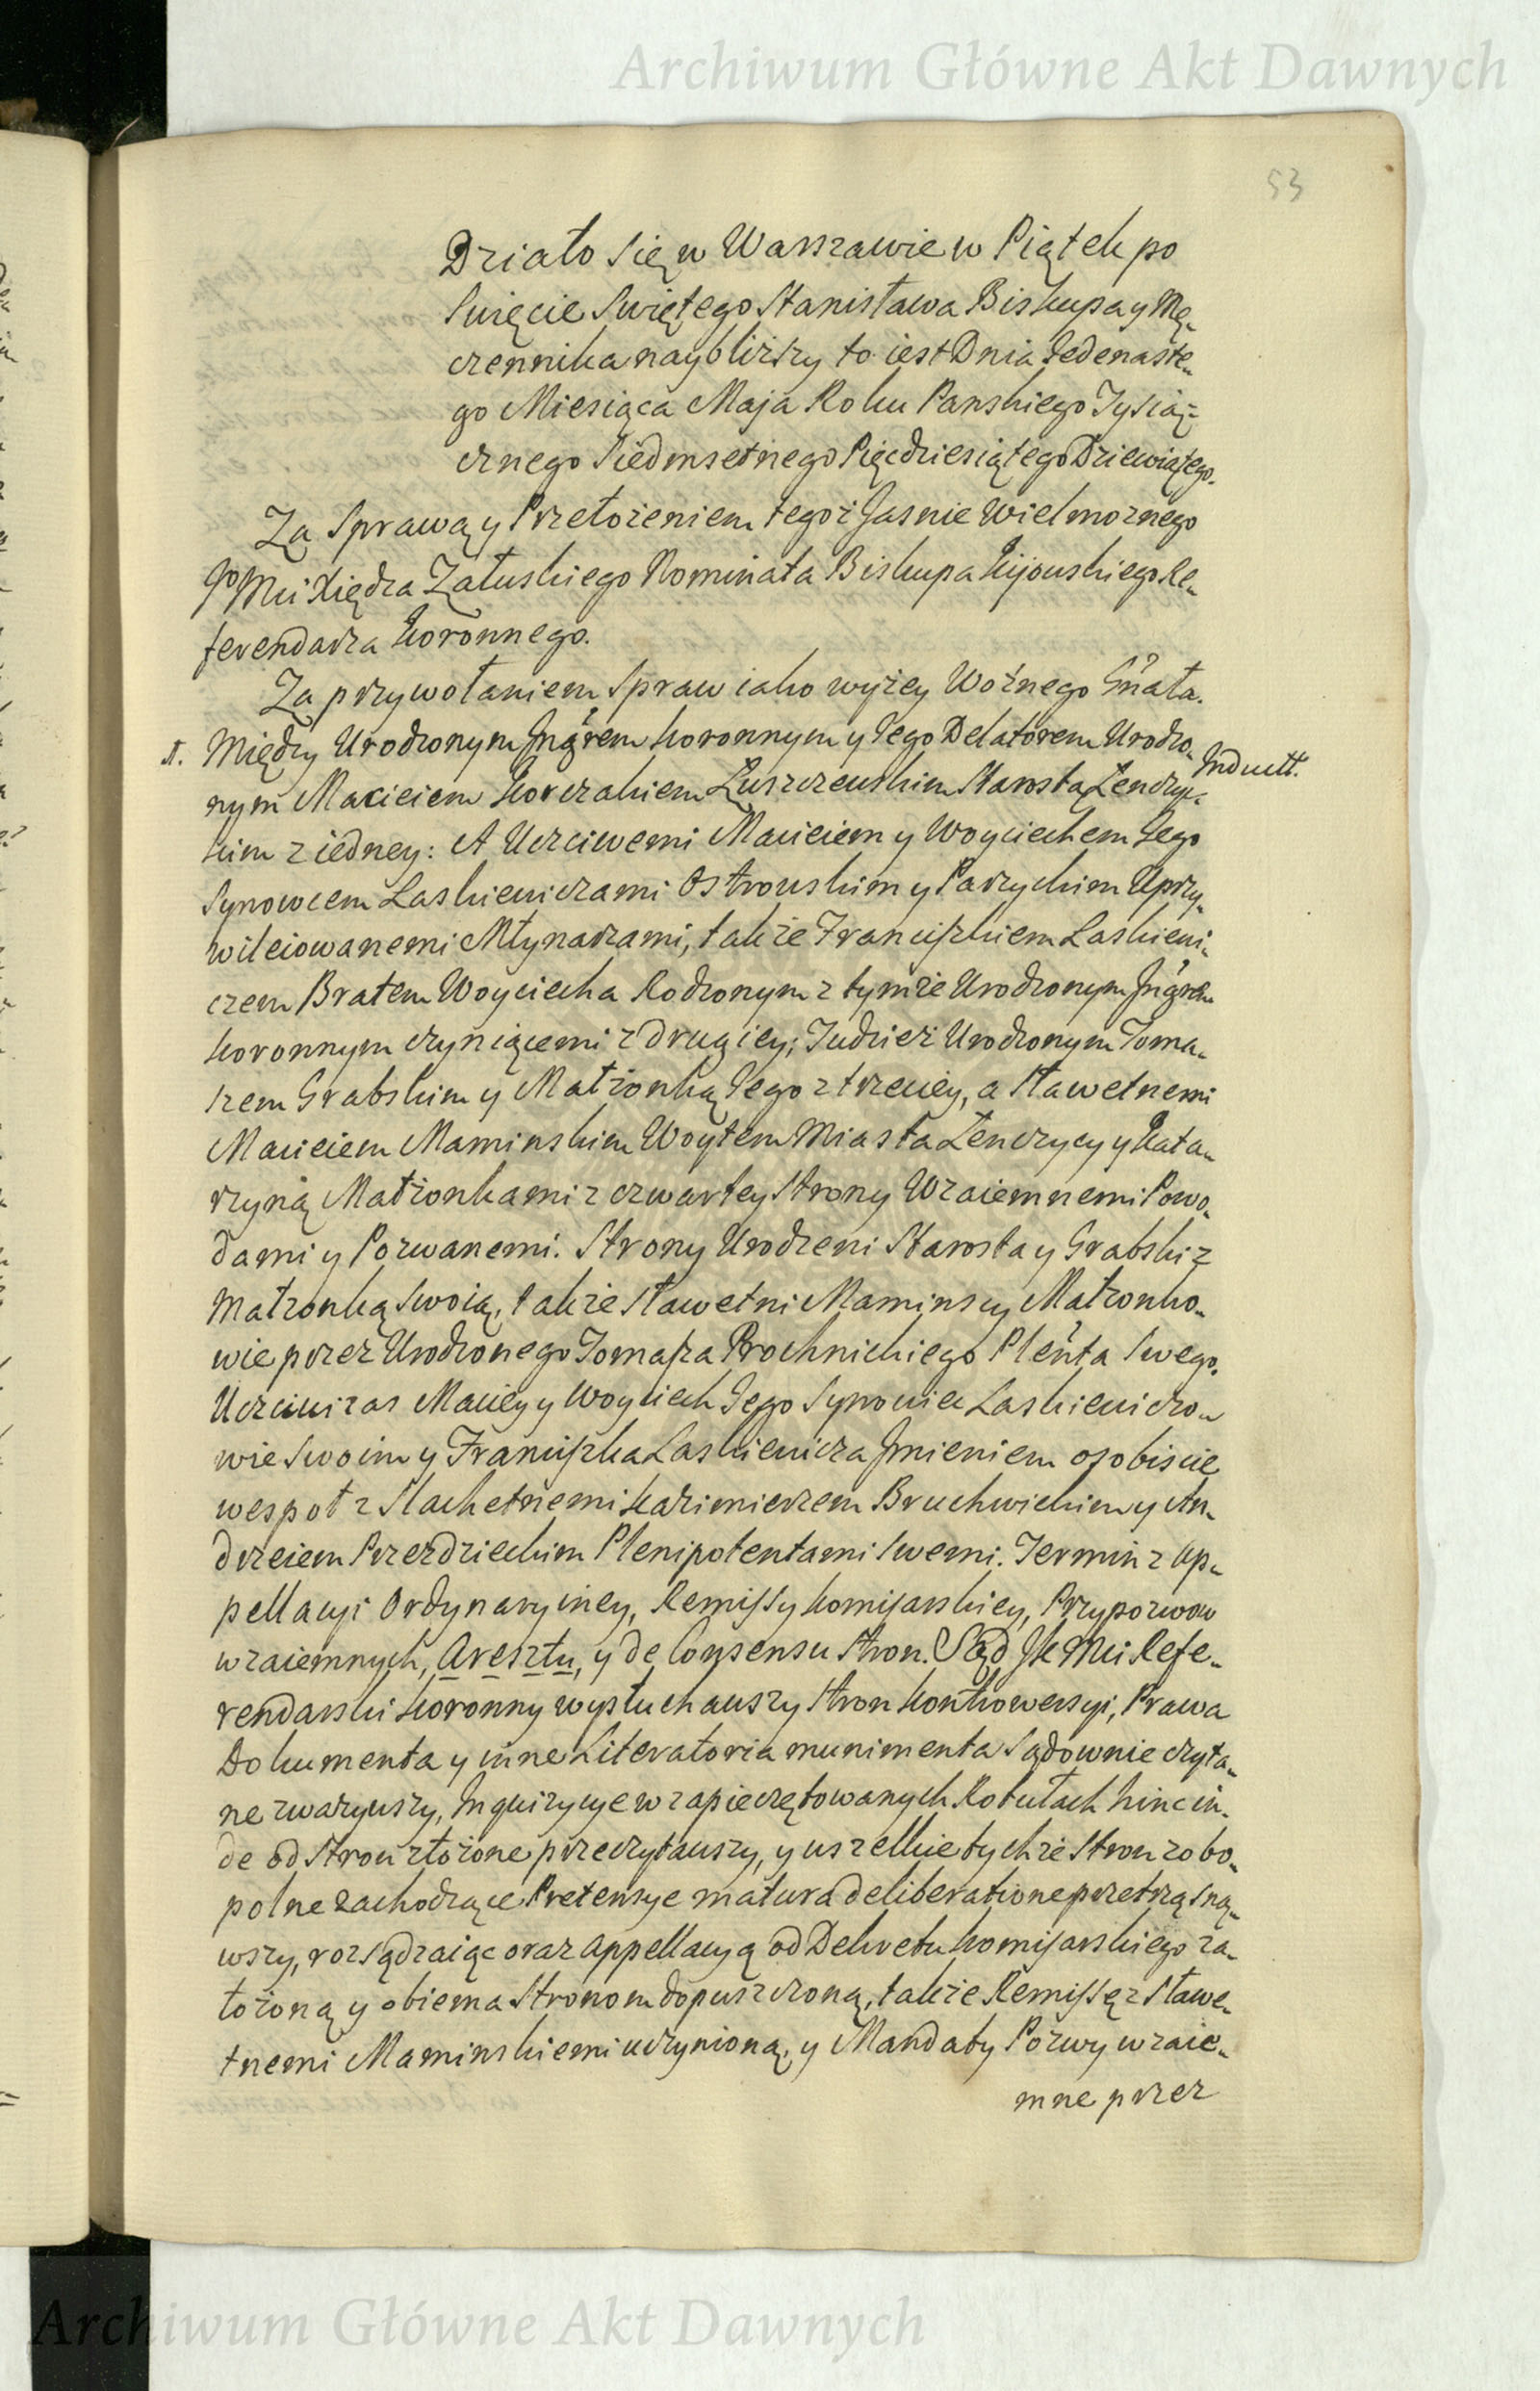 Archiwum Główne Akt Dawnych
53
Działo Się w Warszawie w Piątek po
Swięcie Swiętego Stanisława Biskupa y Mę„
czennika naybliższy to iest Dnia Jedenaste„
go Miesiąca Maja Roku Panskiego Tysią„
cznego Siedmsetnego Pięćdziesiątego Dziewiątego.
Za Sprawą y Przełożeniem tegoż Jasnie Wielmożnego
Jgo Mci Xiędza Załuskiego Nominata Biskupa Kijowskiego Re„
ferendarza Koronnego.
Za przywołaniem Spraw iako wyżey Woźnego Gñała.
Między Urodzonym Jngrem Koronnym y Jego Delatorem Urodzo„
Inductt.
nym Macieiem Korczakiem Łuszczewskim Starostą Łenczyc„
kim z iedney: A Uczciwemi Macieiem y Woyciechem Jego
Synowcem Laskiewiczami Ostrowskim y Parzyckim Uprzy„
wileiowanemi Młynarzami, także Franciszkiem Laskiewi„
czem Bratem Woyciecha Rodzonym z tymże Urodzonym Jngrem
Koronnym czyniącemi z drugiey; Tudzież Urodzonym Toma„
szem Grabskim y Małżonką Jego z trzeciey, a Sławetnemi
Macieiem Maminskim Woytem Miasta Łenczycy y Kata„
rzyną Małżonkami z czwartey Strony Wzaiemnemi Powo„
dami y Pozwanemi. Strony Urodzeni Starosta y Grabski z
Małżonką Swoią, także Sławetni Maminscy Małżonko„
wie przez Urodzonego Tomasza Prochnickiego Pleñta Swego.
Uczciwi zas Maciey y Woyciech Jego Synowiec Laskiewiczo„
wie Swoim y Franciszka Laskiewicza Jmieniem osobiscie
wespoł z Slachetnemi Kazimierzem Bruchwickim y An„
drzeiem Przezdzieckim Plenipotentami Swemi. Termin z Ap„
pellacyi Ordynaryiney, Remissy Komisarskiey, Przypozwow
wzaiemnych, Aresztu, y de Consensu Stron. Sąd Jk Mci Refe„
rendarski Koronny wysłuchawszy Stron Kontrowersyi, Prawa
Dokumenta y inne Literatoria munimenta Sądownie czyta„
ne zważywszy, Inquizycye w zapieczętowanych Rotułach hinc in„
de od Stron złożone przeczytawszy, y wszelkie tychże Stron zobo„
polne zachodzące Pretensye matura deliberatione przetrząsną„
wszy, rozsądzaiąc oraz Appellacyą od Dekretu Komisarskiego za„
łożoną y obiema Stronom dopuszczoną, także Remissę z Sławe„
tnemi Maminskiemi uczynioną, y Mandaty Pozwy wzaie„
mne przez
Archiwum Główne Akt Dawnych